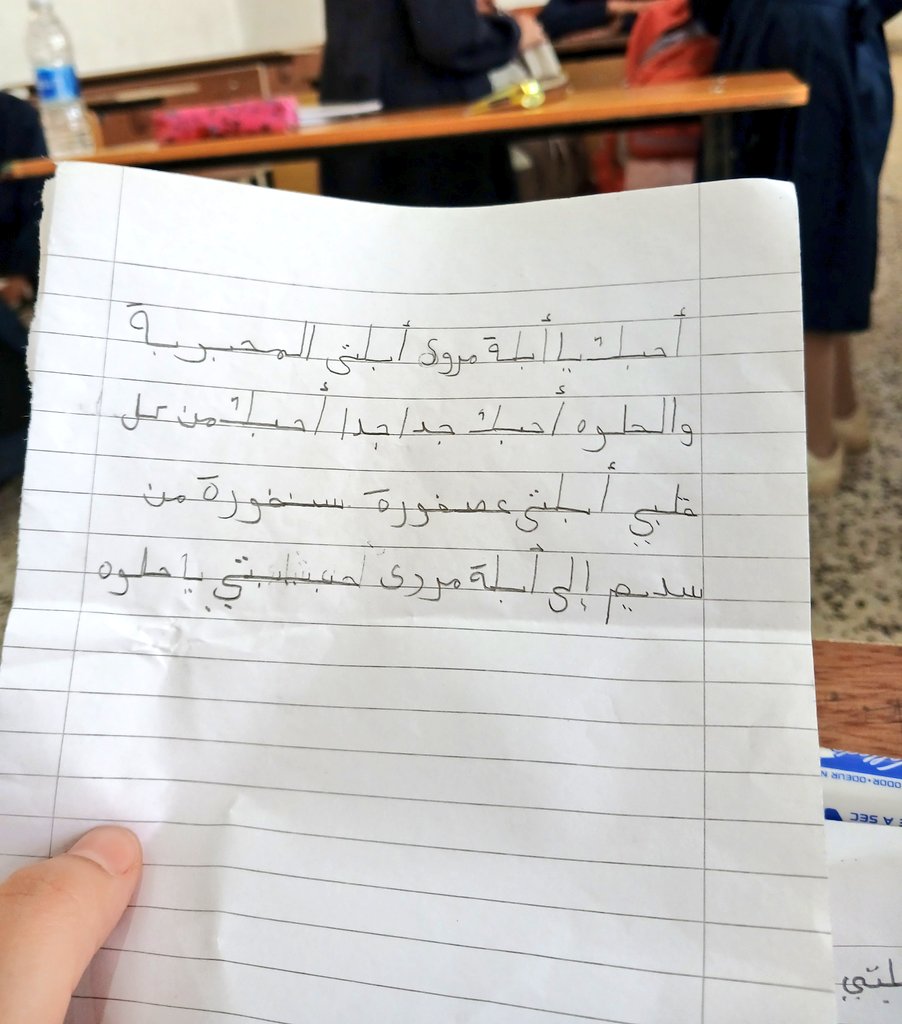 أحبك يا أبلة مروى أبلتي المحبوبة
والحلوه أحبك جدا جدا أحبك من كل
قلبي أبلتي عصفورة سنفورة من
سديم إلى أبلة مروى حبيبتي يا حلوه
ODOR•ODEUR N
E A SEC